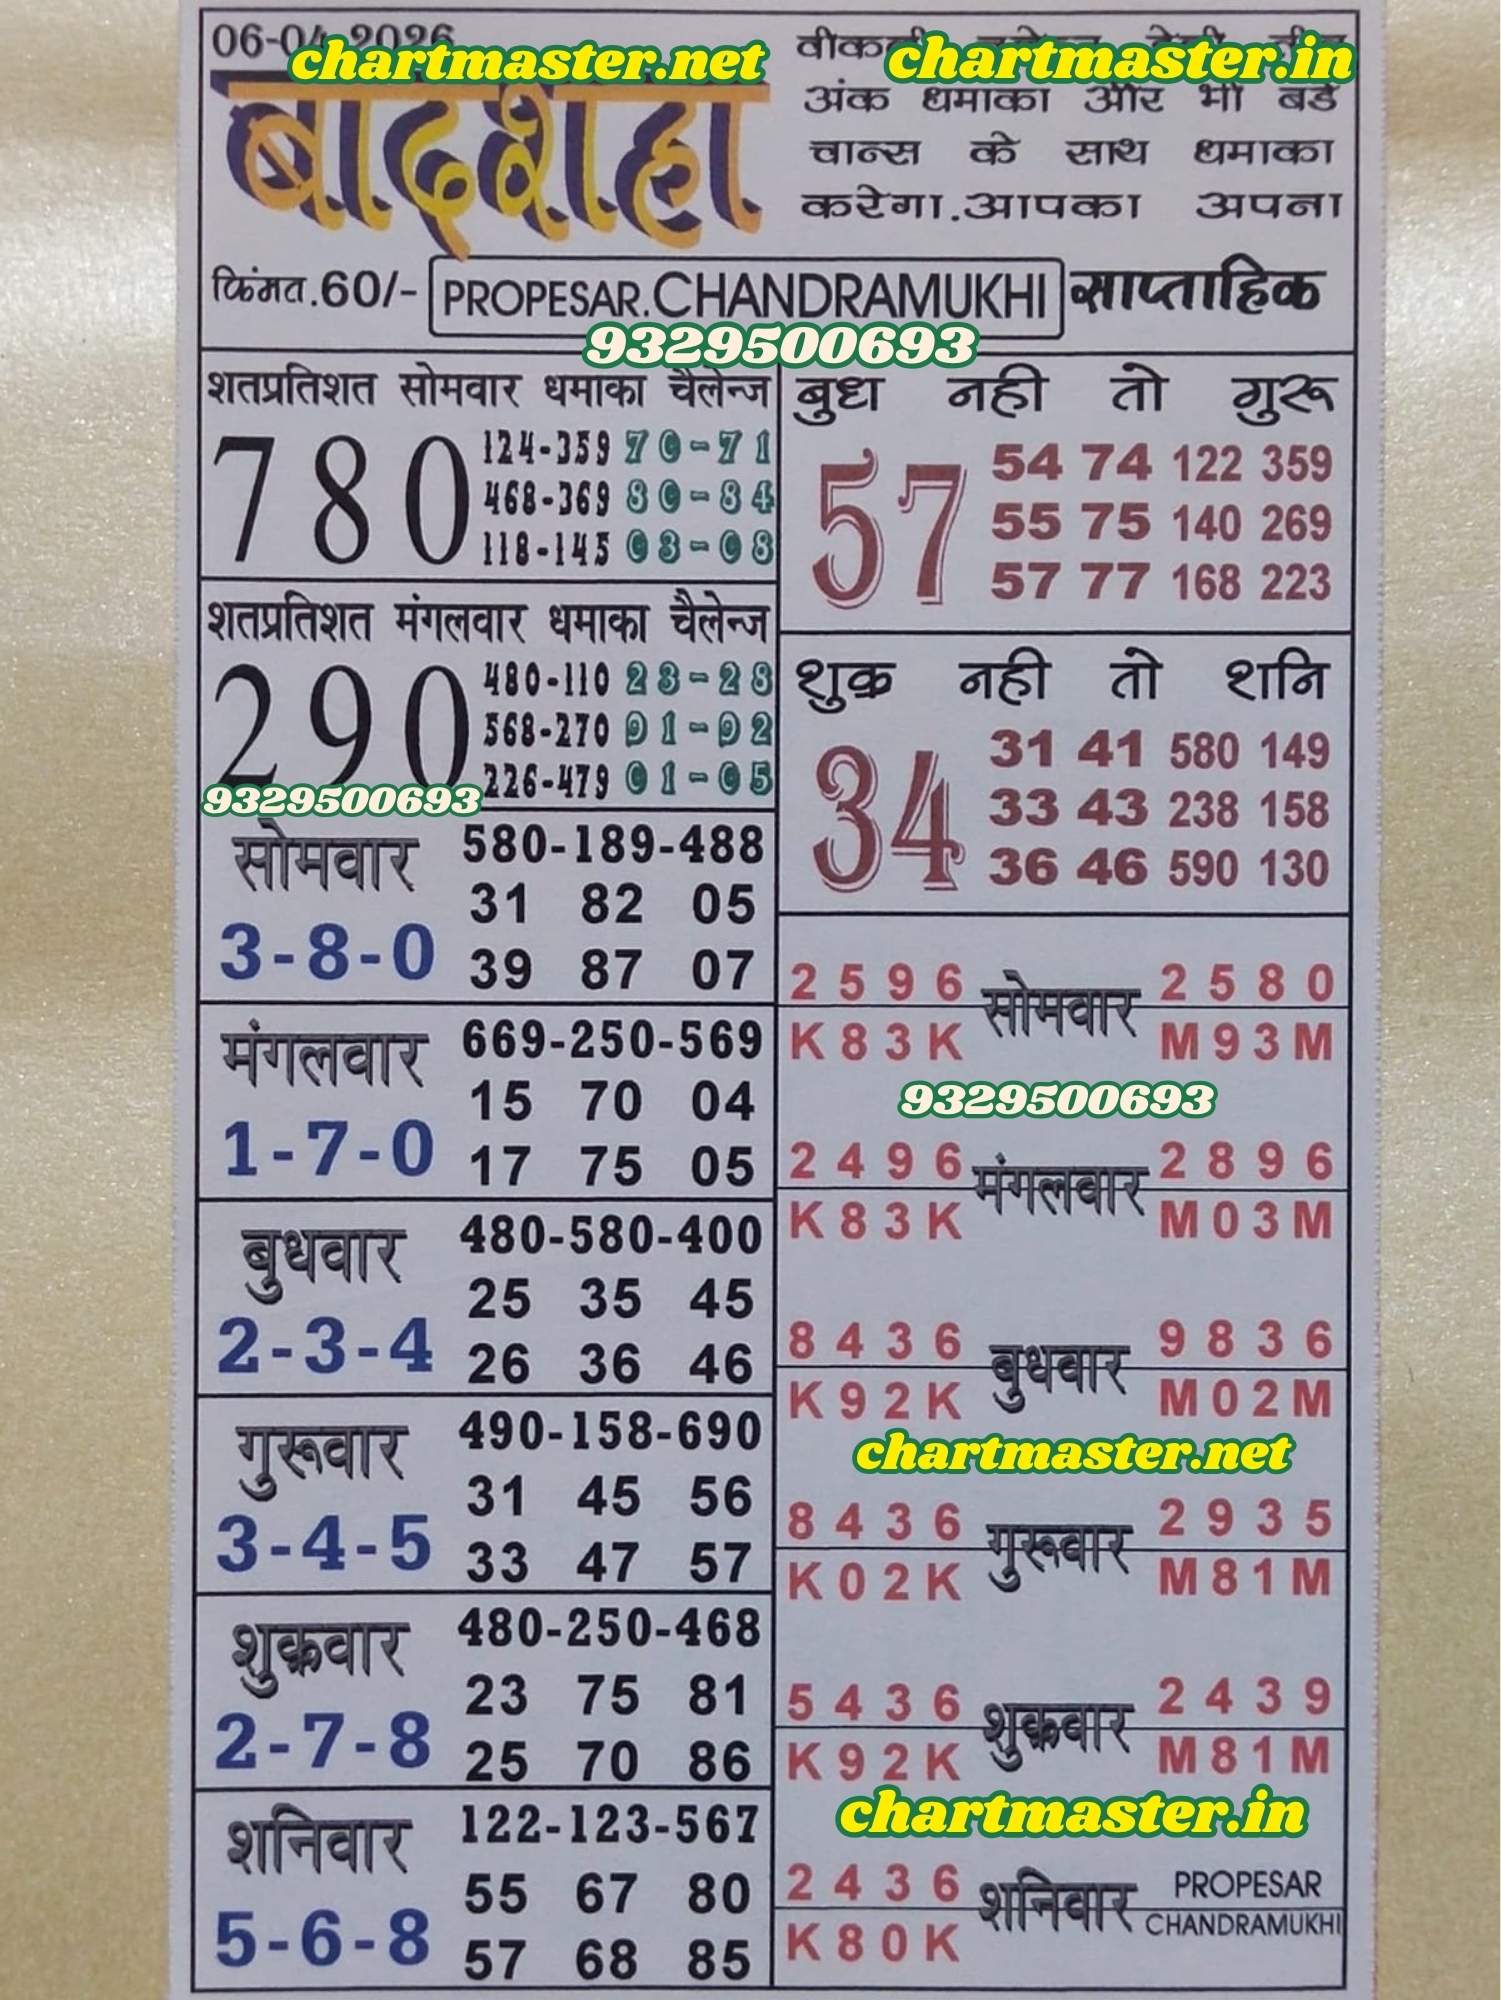 06-04-2026
chartmaster.net
chartmaster.in
बादशहा
अंक धमाका और भी बडे
चान्स के साथ धमाका
करेगा.आपका अपना
किंमत.60/-
PROPESAR.CHANDRAMUKHI
साप्ताहिक
9329500693
शतप्रतिशत सोमवार धमाका चैलेन्ज
780
124-359 70-71
468-369 80-84
118-145 03-08
शतप्रतिशत मंगलवार धमाका चैलेन्ज
290
480-110 23-28
568-270 91-92
226-479 01-05
9329500693
बुध नही तो गुरू
57
54 74 122 359
55 75 140 269
57 77 168 223
शुक्र नही तो शनि
34
31 41 580 149
33 43 238 158
36 46 590 130
सोमवार
3-8-0
580-189-488
31 82 05
39 87 07
मंगलवार
1-7-0
669-250-569
15 70 04
17 75 05
बुधवार
2-3-4
480-580-400
25 35 45
26 36 46
गुरूवार
3-4-5
490-158-690
31 45 56
33 47 57
शुक्रवार
2-7-8
480-250-468
23 75 81
25 70 86
शनिवार
5-6-8
122-123-567
55 67 80
57 68 85
2596 सोमवार 2580
K83K M93M
9329500693
2496 मंगलवार 2896
K83K M03M
8436 बुधवार 9836
K92K M02M
chartmaster.net
8436 गुरूवार 2935
K02K M81M
5436 शुक्रवार 2439
K92K M81M
chartmaster.in
2436 शनिवार PROPESAR
K80K CHANDRAMUKHI